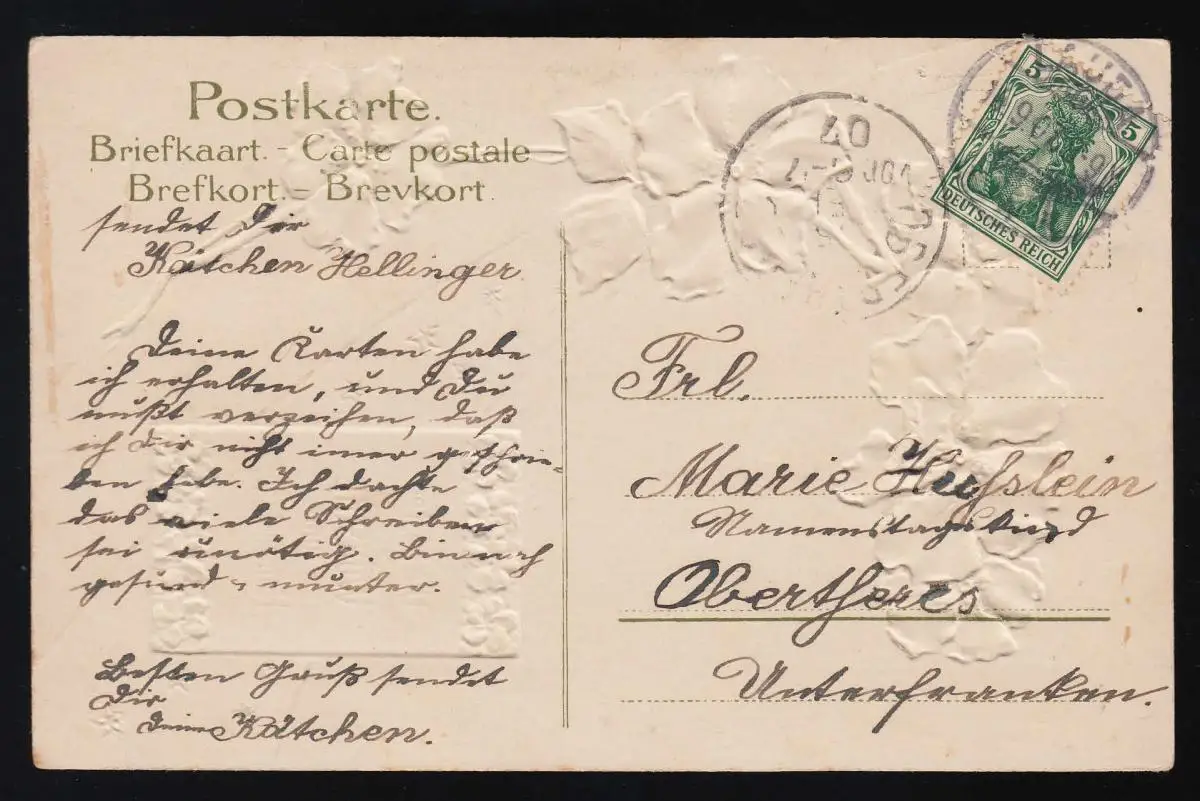 Postkarte.
Briefkaart. - Carte postale
Brefkort. - Brevkort.
sendet Dir
Kätchen Hellinger
Deine Karten habe
ich erhalten, und Du
mußt verzeihen, daß
ich Dir nicht imer geschrie-
ben habe. Ich dachte
das viele Schreiben
sei unötig. Bin noch
gesund u. munter.
Besten Gruß sendet
Dir
deine Kätchen.
5
5
DEUTSCHES REICH
07
Frl.
Marie Hufslein
Namenstagskind
Obertheres
Unterfranken.